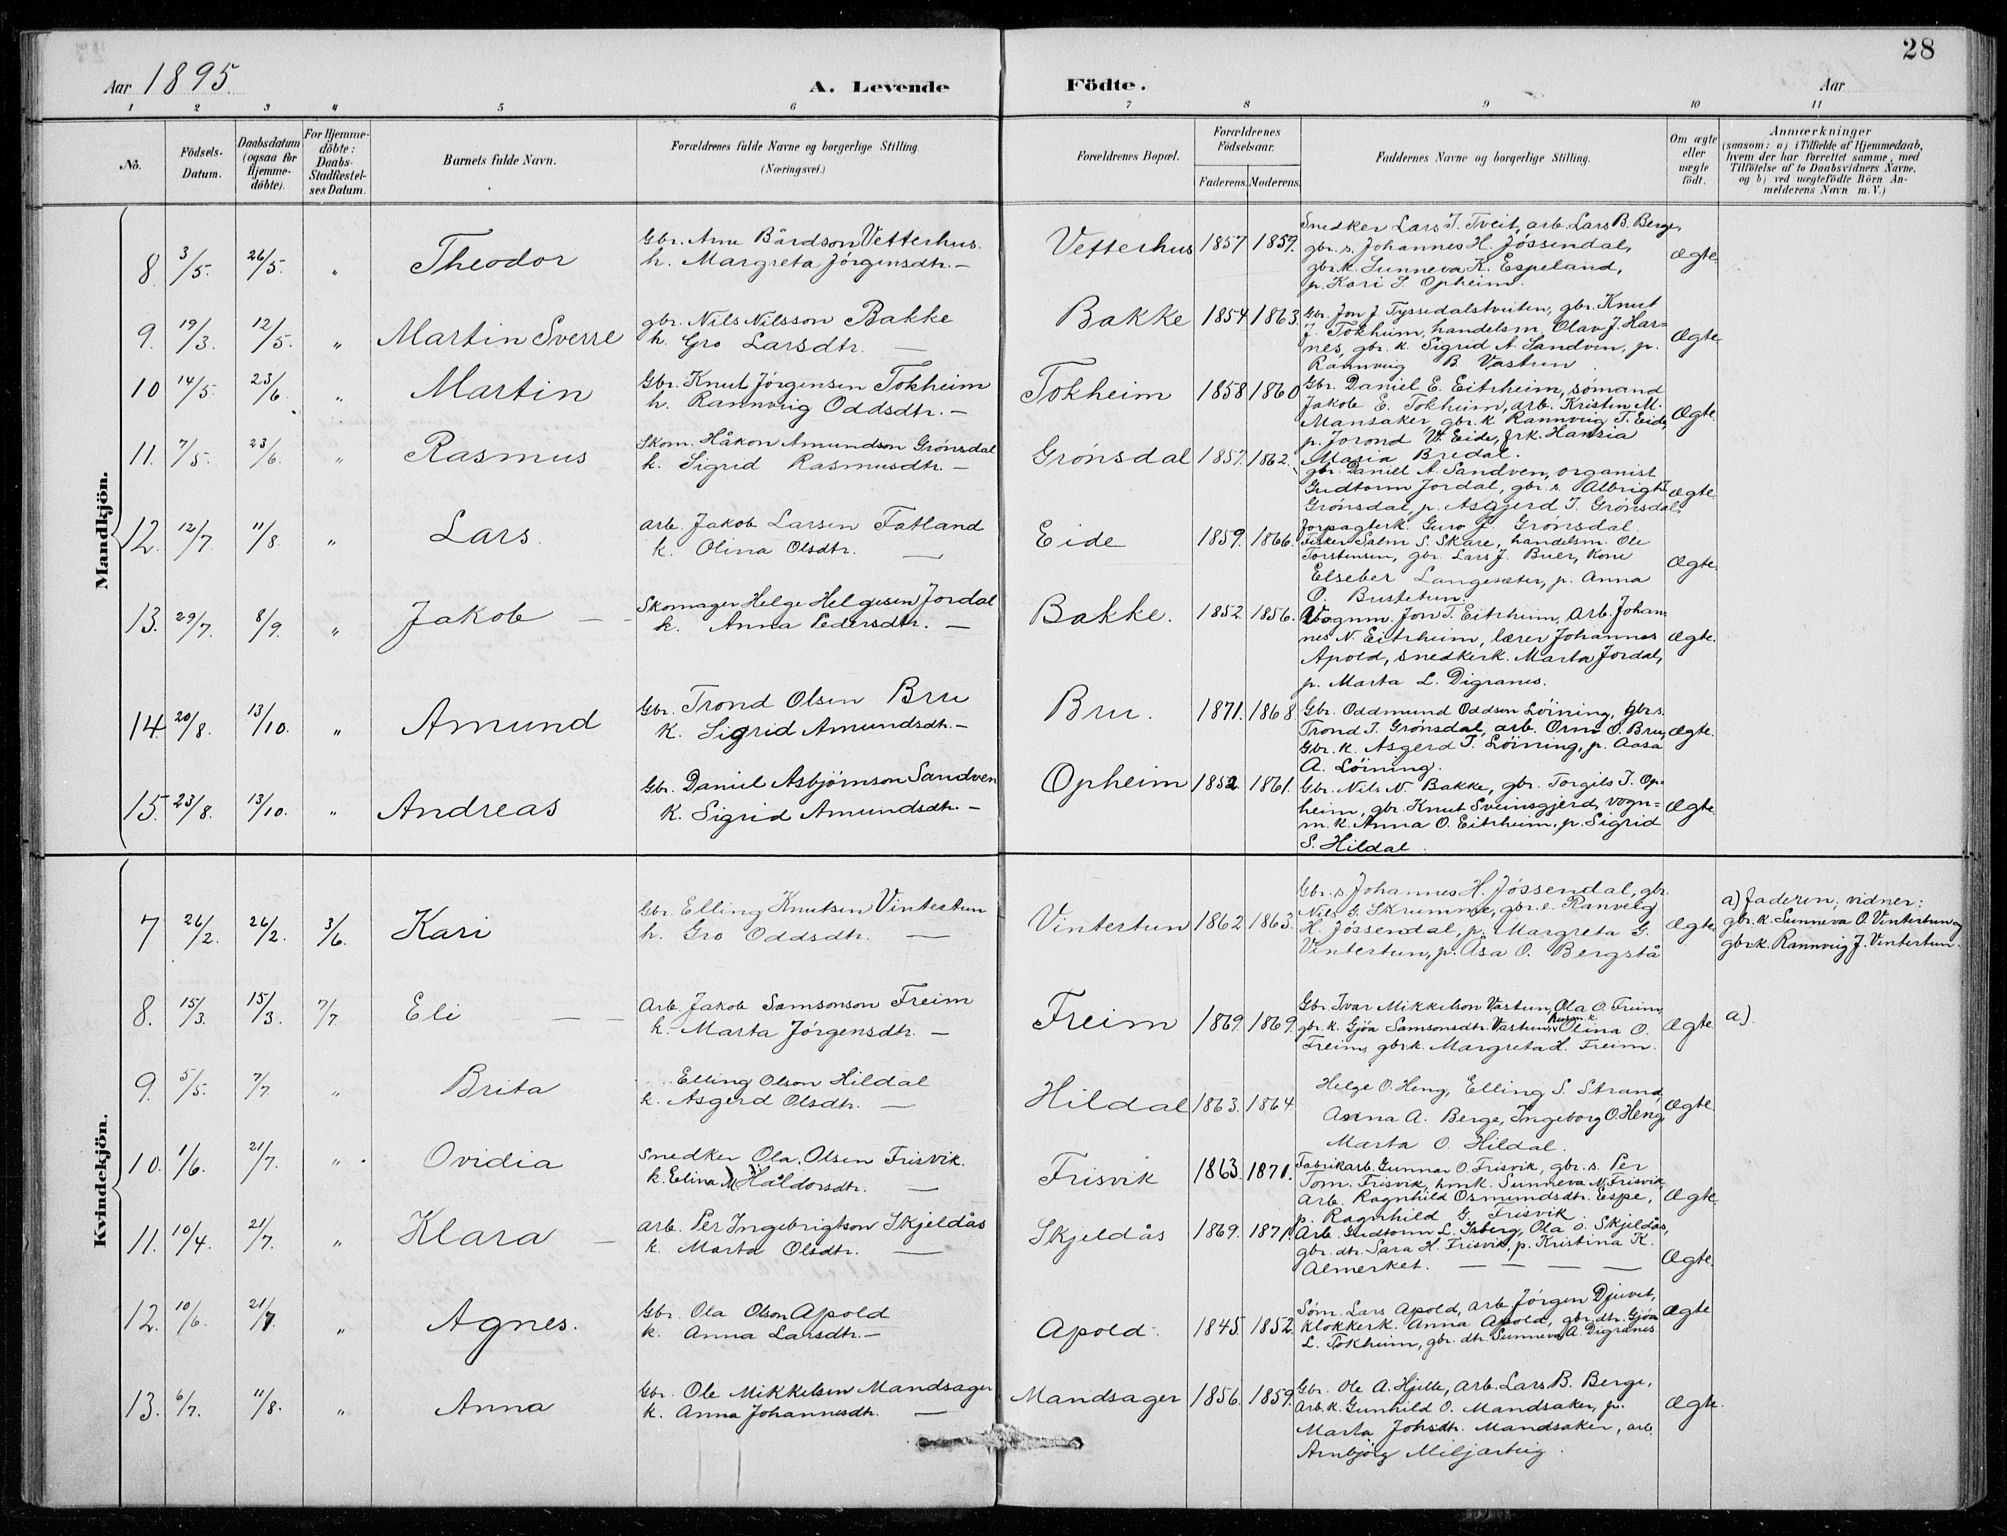 28
Aar 1895.
A. Levende Födte.
Aar
1 2 3 4 5 6 7 8 9 10 11
No.
Födsels-Datum.
Daabsdatum (ogsaa for Hjemme-döbte).
For Hjemme-döbte: Daabs-Stadfæstel-ses Datum.
Barnets fulde Navn.
Forældrenes fulde Navne og borgerlige Stilling. (Næringsvei.)
Forældrenes Bopæl.
Forældrenes Födselsaar.
Faderens. Moderens.
Faddernes Navne og borgerlige Stilling.
Om ægte eller uægte födt.
Anmærkninger
(saasom: a) i Tilfælde af Hjemmedaab,
hvem der har forrettet samme, med
Tilföielse af to Daabsvidners Navne,
og b) ved uægtefödte Börn An-
melderens Navn m. V.)
Mandkjön.
8. 3/5. 26/5. " Theodor
Gbr. Arne Bårdson Vetterhus.
h. Margreta Jörgensdtr. —
Vetterhus 1857 1859.
Snedker Lars T. Tveit, arb. Lars B. Berge,
gbr. s. Johannes H. Jössendal,
gbr. k. Sunneva K. Espeland,
p. Kari S. Opheim.
Ægte.
9. 19/3. 12/5. " Martin Sverre
gbr. Nils Nilsson Bakke
h. Gro Larsdtr. —
Bakke 1854 1863.
Gbr. Jon J. Tyssedalstveiten, gbr. Knut
J. Tokheim, handelsm. Olav J. Har-
nes, gbr. k. Sigrid A. Sandven, p.
Rannveig B. Vastun.
Ægte
10 14/5. 23/6. " Martin
Gbr. Knut Jörgensen Tokheim
h. Rannveig Oddsdtr. —
Tokheim 1858 1860
Gbr. Daniel E. Eitrheim, sömand
Jakob E. Tokheim, arb. Kristen M.
Mansaker, gbr. k. Rannveig T. Eide,
p. Jorond W. Eide, frk. Hansia
Maria Bredal.
Ægte.
11. 7/5. 23/6. " Rasmus
Skom. Håkon Amundson Grönsdal
k. Sigrid Rasmusdtr. —
Grönsdal 1857. 1862.
gbr. Daniel A. Sandven, organist
Gudtorm Jordal, gbr. s. Albrigt J.
Grönsdal, p. Asgjerd T. Grönsdal,
Forpagterk. Guro J. Grönsdal.
Ægte
12. 12/7. 11/8. " Lars.
arb. Jakob Larsen Fatland
k. Olina Olsdtr. —
Eide 1859. 1866.
Fisker Salm S. Skare, handelsm. Ole
Torstensen, gbr. Lars J. Buer, Kone
Elseber Langesæter, p. Anna
O. Bustetun.
Ægte.
13. 29/7. 8/9. " Jakob —
Skomager Helge Helgesen Jordal
k. Anna Pedersdtr. —
Bakke. 1852. 1856.
Vognm. Jon T. Eitrheim, arb. Johan-
nes N. Eitrheim, lærer Johannes
Apold, snedkerk. Marta Jordal,
p. Marta L. Digranes.
Ægte.
14. 20/8. 13/10. " Amund
Gbr. Trond Olsen Bru
K. Sigrid Amundsdtr. —
Bru. 1871. 1868
Gbr. Oddmund Oddson Löining, Gbr. s.
Trond T. Grönsdal, arb. Orm O. Bru,
Gbr. k. Asgerd T. Löining, p. Aasa
A. Löining.
Ægte.
15. 23/8. 13/10. " Andreas
Gbr. Daniel Asbjörnson Sandven
K. Sigrid Amundsdtr. —
Opheim 1852 1861.
Gbr. Nils N. Bakke, gbr. Torgils T. Op-
heim, gbr. Knut Sveinsgjerd, vogn-
m. k. Anna O. Eitrheim, p. Sigrid
S. Hildal.
Ægte.
Kvindekjön.
7 26/2. 26/2. 3/6. Kari
Gbr. Elling Knutsen Vintertun
h. Gro Oddsdtr. —
Vintertun 1862 1863.
Gbr. s. Johannes H. Jössendal, gbr.
Nils G. Skrumme, gbr. e. Ranveig
H. Jössendal, p. Margreta G.
Vintertun, p. Åsa O. Bergstå
Ægte.
a) Faderen; vidner:
gbr. k. Sunneva O. Vintertun og
gbr. k. Rannveig J. Vintertun.
8. 15/3. 15/3. 7/7. Eli — —
Arb. Jakob Samsonson Freim
k. Marta Jörgensdtr. —
Freim 1869. 1869.
Gbr. Ivar Mikkelson Vastun, Ola O. Freim,
gbr. k. Gjöa Samsonsdtr. Vastun, husm. k. Olina O.
Freim, gbr. k. Margreta H. Freim.
Ægte
a).
9. 5/5. 7/7. " Brita
Elling Olson Hildal
k. Asgerd Olsdtr. —
Hildal 1863. 1864
Helge O. Heng, Elling S. Strand,
Anna A. Berge, Ingeborg O. Heng,
Marta O. Hildal.
Ægte.
10. 1/6. 21/7. " Ovidia
Snedker Ola Olsen Frisvik.
k. Elina M. Håldorsdtr. —
Frisvik 1863. 1871.
Fabrikarb. Gunnar O. Frisvik, gbr. s. Per
Tom. Frisvik, hmk. Sunneva N. Frisvik,
Arb. Ragnhild Osmundsdtr. Espe,
p. Ragnhild G. Frisvik.
Ægte
11. 10/4. 21/7. " Klara —
arb. Per Ingebrigtson Skjeldås
k. Marta Olsdtr. —
Skjeldås 1869. 1871.
Arb. Gudtorm L. Isberg, Ola O. Skjeldås,
gbr. dtr. Sara H. Frisvik, p. Kristina K.
Almerket. — — — —
Ægte.
12. 10/6. 21/7. " Agnes.
Gbr. Ola Olson Apold
k. Anna Larsdtr. —
Apold. 1845. 1852.
Söm. Lars Apold, arb. Jörgen Djuvet,
klokkerk. Anna Apold, gbr. dtr. Gjöa
L. Tokheim, gbr. dtr. Sunneva A. Digranes
Ægte
13. 6/7. 11/8. " Anna
Gbr. Ole Mikkelsen Mandsager
k. Anna Johannesdtr. —
Mandsager 1856. 1859.
Gbr. Ole A. Hjelle, Arb. Lars B. Berge,
Arb. k. Gunhild O. Mandsaker, p.
Marta Johsdtr. Mandsaker, arb.
Arnbjörg Miljarteig.
Ægte.